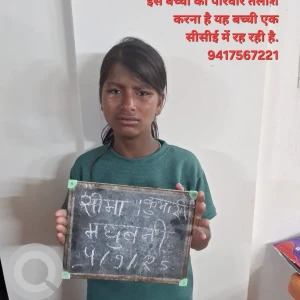 इस बच्ची का परिवार तलाश
करना है यह बच्ची एक
सीसीई में रह रही है.
9417567221
सीमा कुमारी
मधुबनी
4/9/25